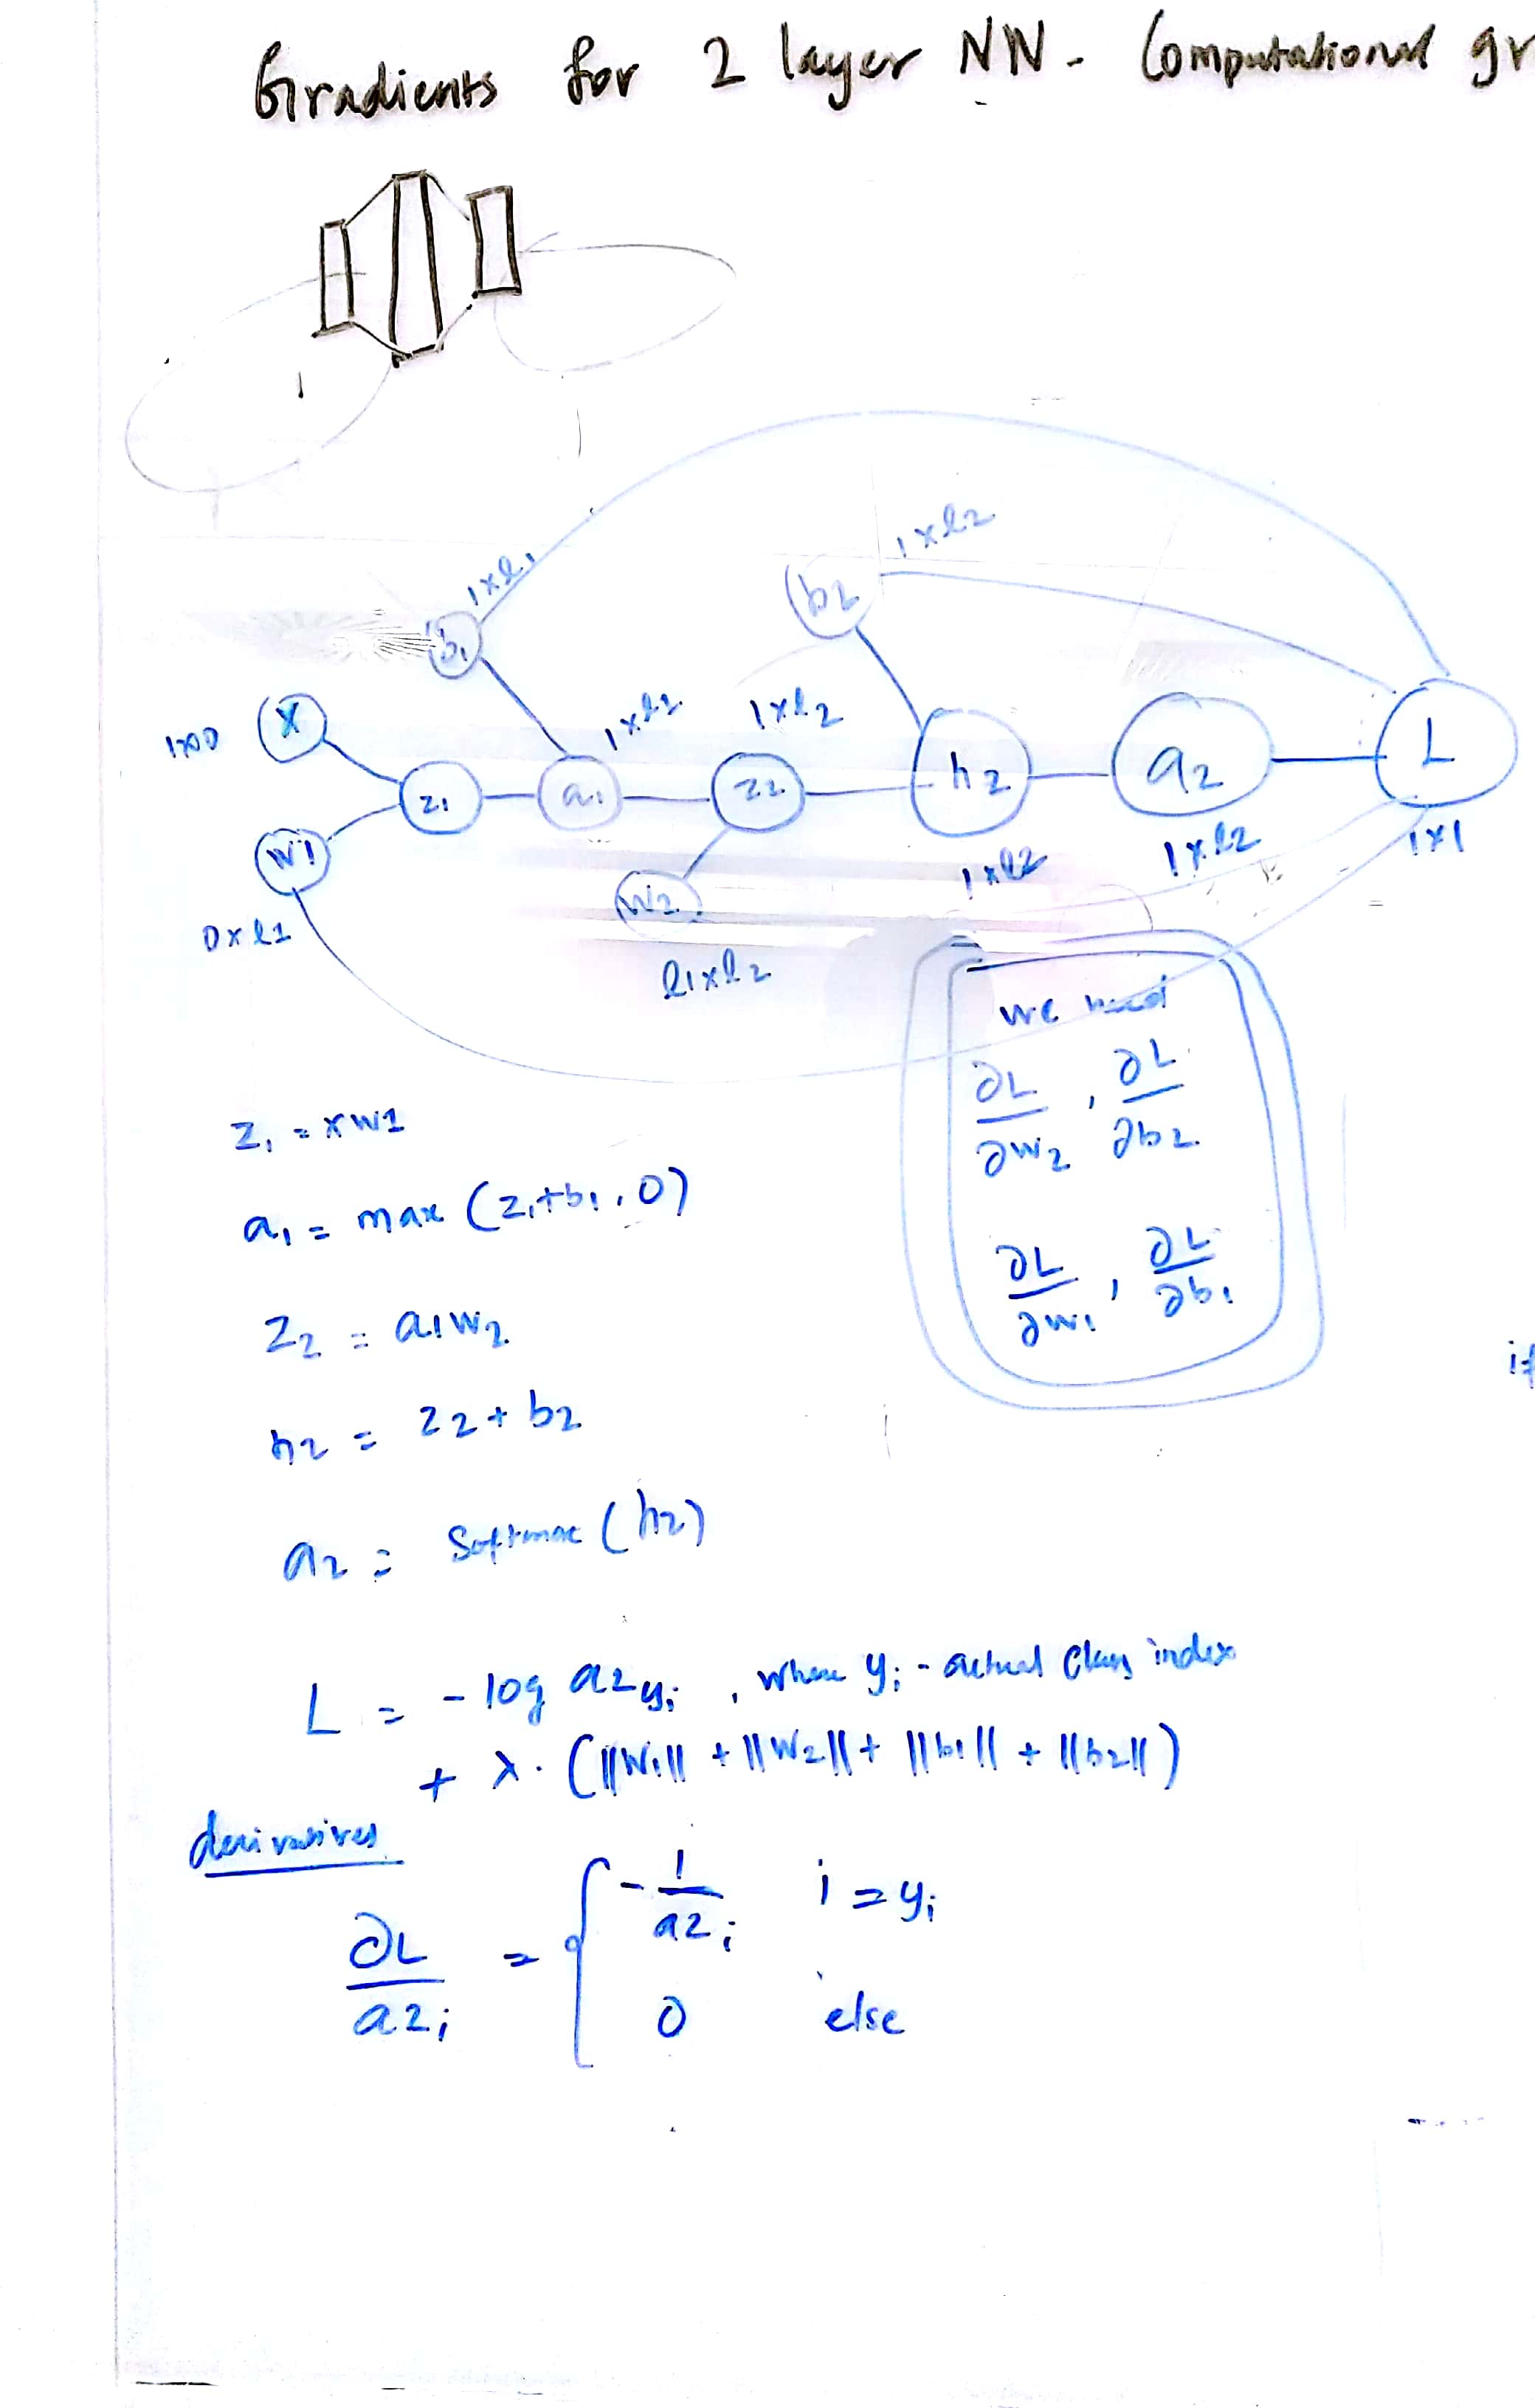 Gradients for 2 layer NN - Computational gr
1xl1
1xl2
b1
b2
1xD
X
1xl2
1xl2
z1
a1
z2
h2
a2
L
W1
W2
1xl2
1xl2
1x1
Dxl1
l1xl2
we need
∂L/∂w2 , ∂L/∂b2
∂L/∂w1 , ∂L/∂b1
z1 = xw1
a1 = max (z1+b1, 0)
z2 = a1w2
h2 = z2 + b2
a2 = Softmax (h2)
L = - log a2yi , where yi - actual class index
+ λ. (||W1|| + ||W2|| + ||b1|| + ||b2||)
derivatives
∂L/a2i = { -1/a2i i = yi
0 else